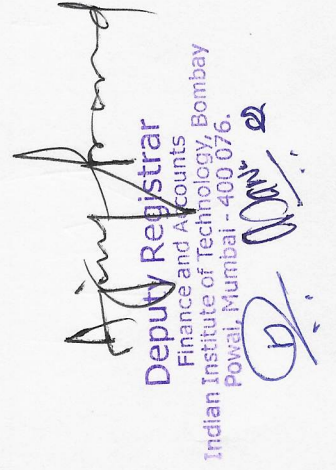 Deputy Registrar
Finance and Accounts
Indian Institute of Technology, Bombay
Powai, Mumbai - 400 076.